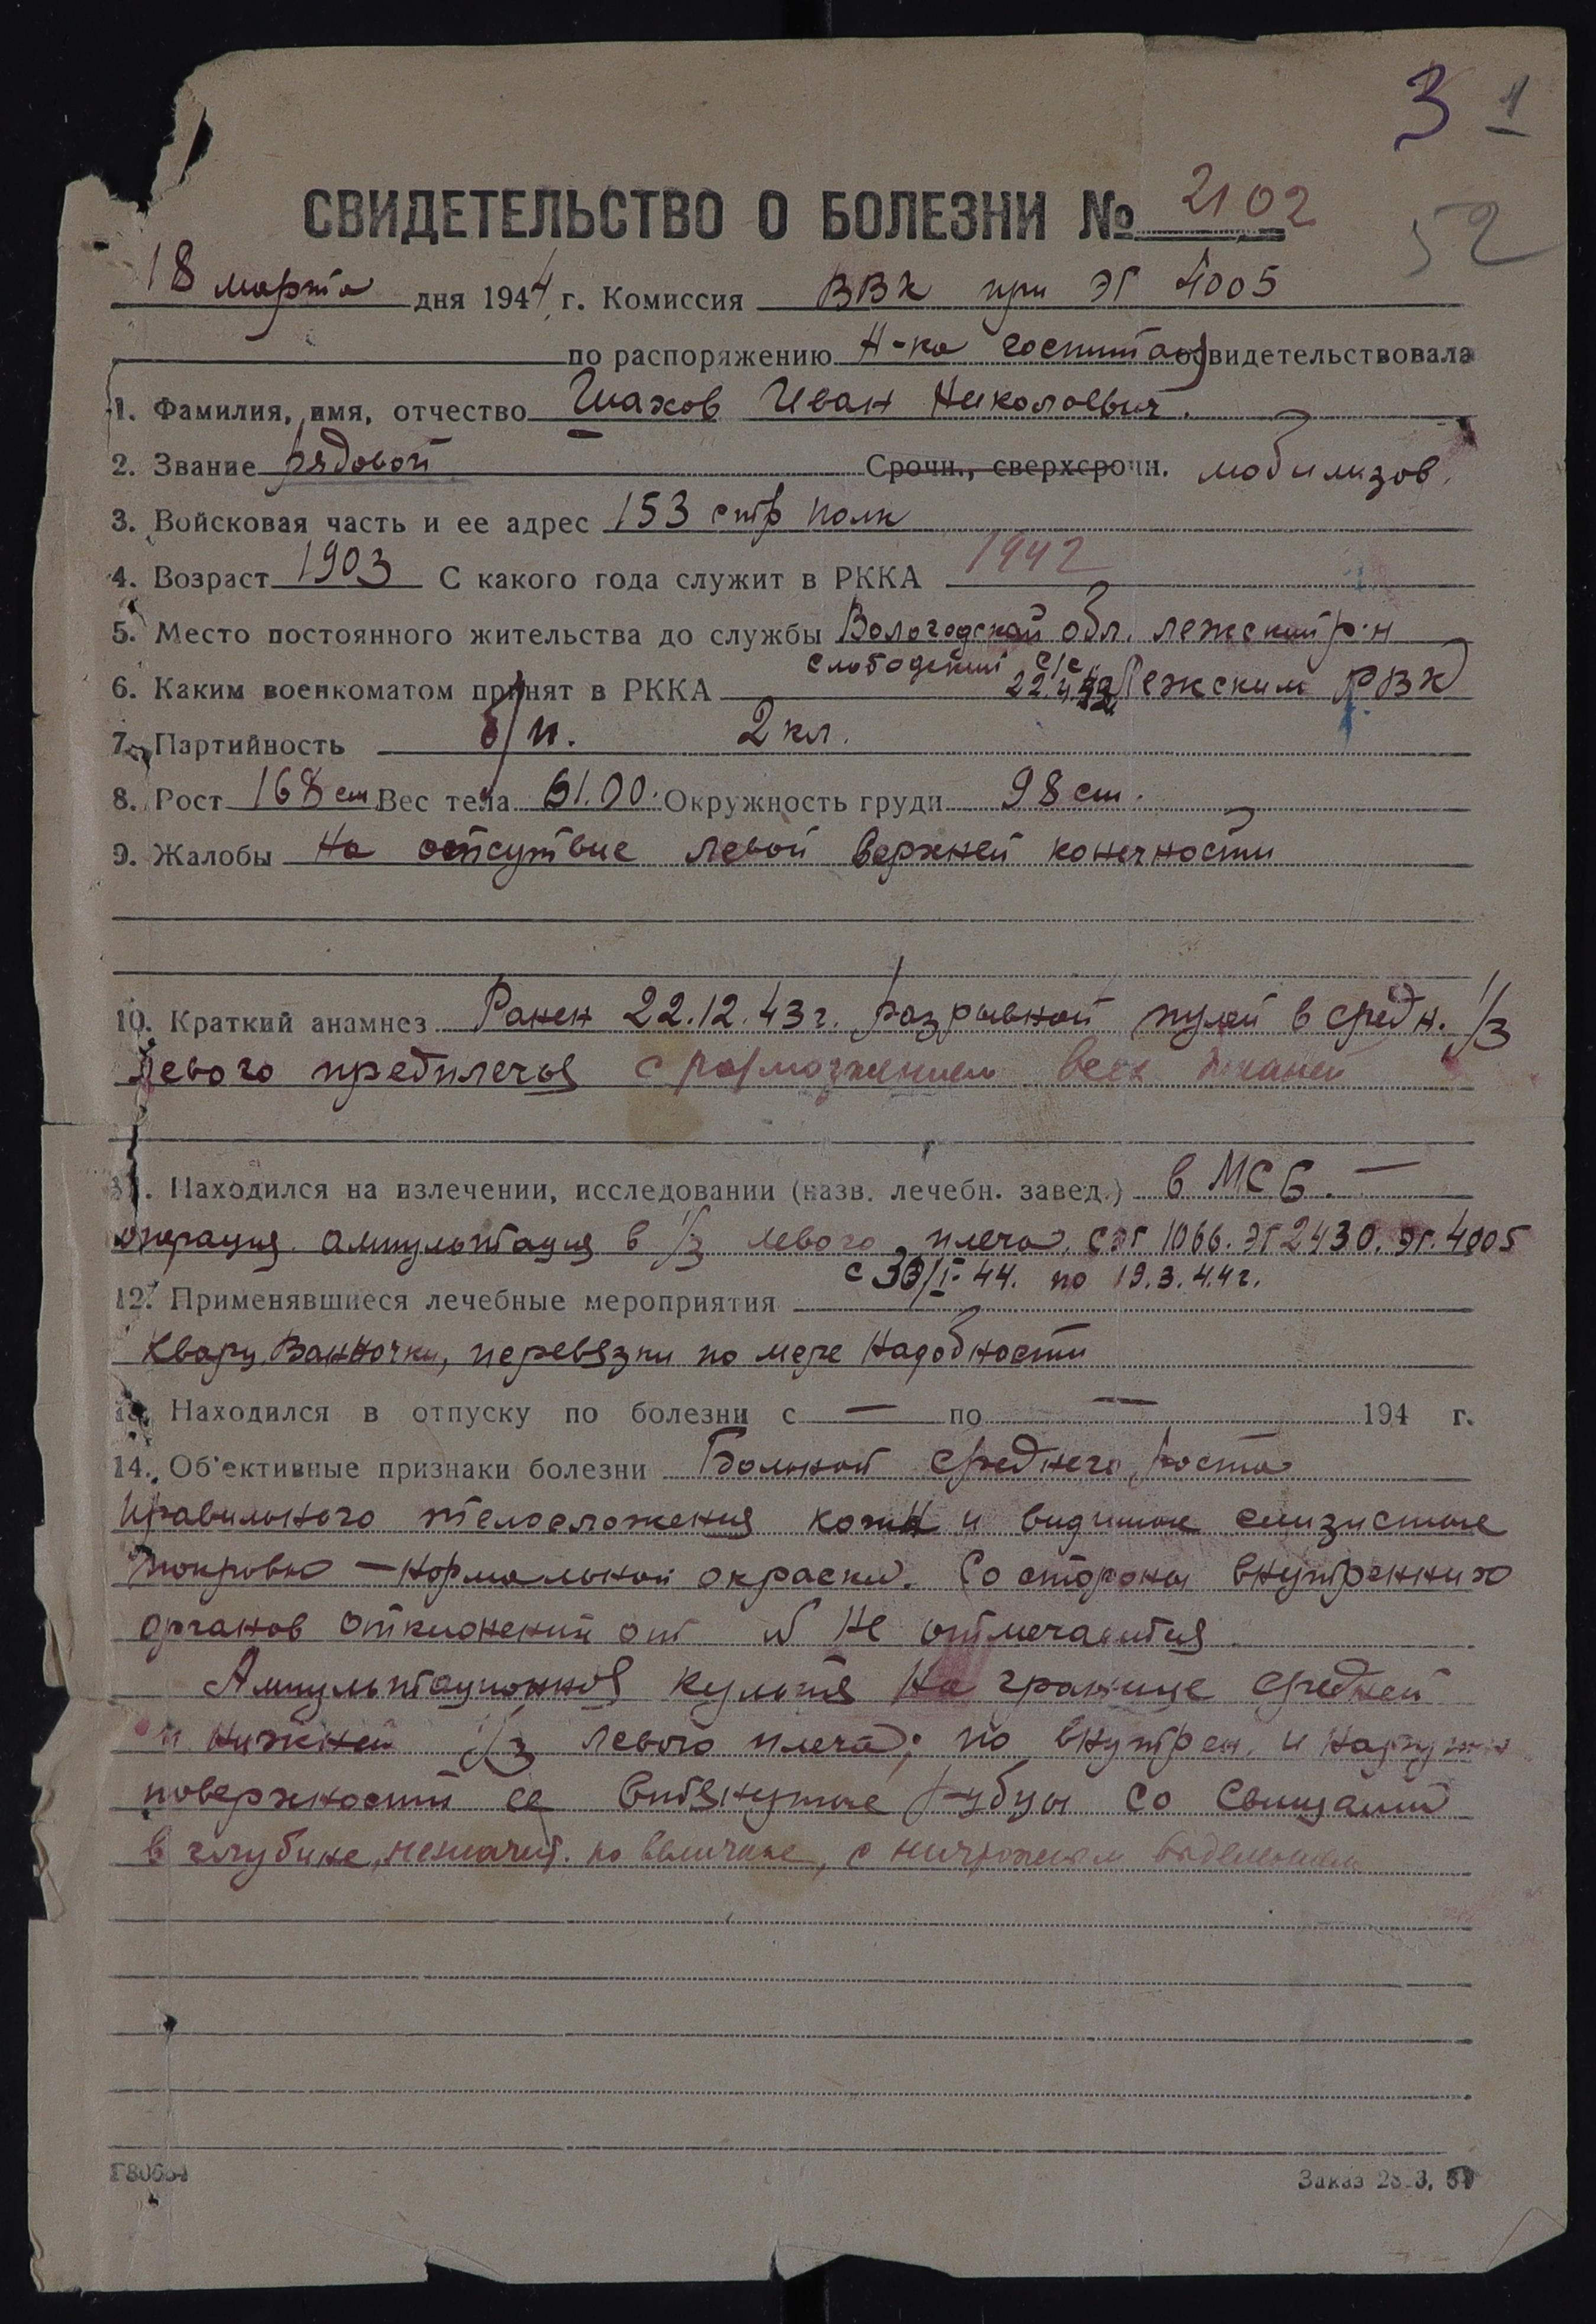 3 1
СВИДЕТЕЛЬСТВО О БОЛЕЗНИ № 2102
52
18 марта дня 1944 г. Комиссия ВВК при ЭГ 4005
по распоряжению Н-ка госпиталя освидетельствовала
1. Фамилия, имя, отчество Шахов Иван Николаевич.
2. Звание рядовой Срочн., сверхсрочн. мобилизов.
3. Войсковая часть и ее адрес 153 стр полк
4. Возраст 1903 С какого года служит в РККА 1942
5. Место постоянного жительства до службы Вологодской обл. Лежский р-н
слободский с/с
6. Каким военкоматом принят в РККА 22.4.42 Лежским РВК
7. Партийность б/п. 2 кл.
8. Рост 168 см Вес тела 61.00. Окружность груди 98 см.
9. Жалобы На отсутвие левой верхней конечности
10. Краткий анамнез Ранен 22.12.43 г. разрывной пулей в средн. 1/3
левого предплечья с размозжением всех тканей
11. Находился на излечении, исследовании (назв. лечебн. завед.) в МСБ. —
операция ампультация в 1/3 левого плеча. СЭГ 1066. ЭГ 2430. ЭГ. 4005
с 30/I-44. по 19.3.44 г.
12. Применявшиеся лечебные мероприятия
Кварц, Ванночки, перевязки по мере надобности
13. Находился в отпуску по болезни с — по — 194 г.
14. Об'ективные признаки болезни Больной среднего роста
правильного телосложения кожн и видимые слизистые
покровы — нормальной окраски. Со стороны внутренних
органов отклонений от N не отмечается.
Ампультационная культя на границе средней
и нижней 1/3 левого плеча; по внутрен. и наружн
поверхности ее втянутые рубцы со свищами
в глубине, незначит. по величине, с ничтожным выделением
Заказ 28